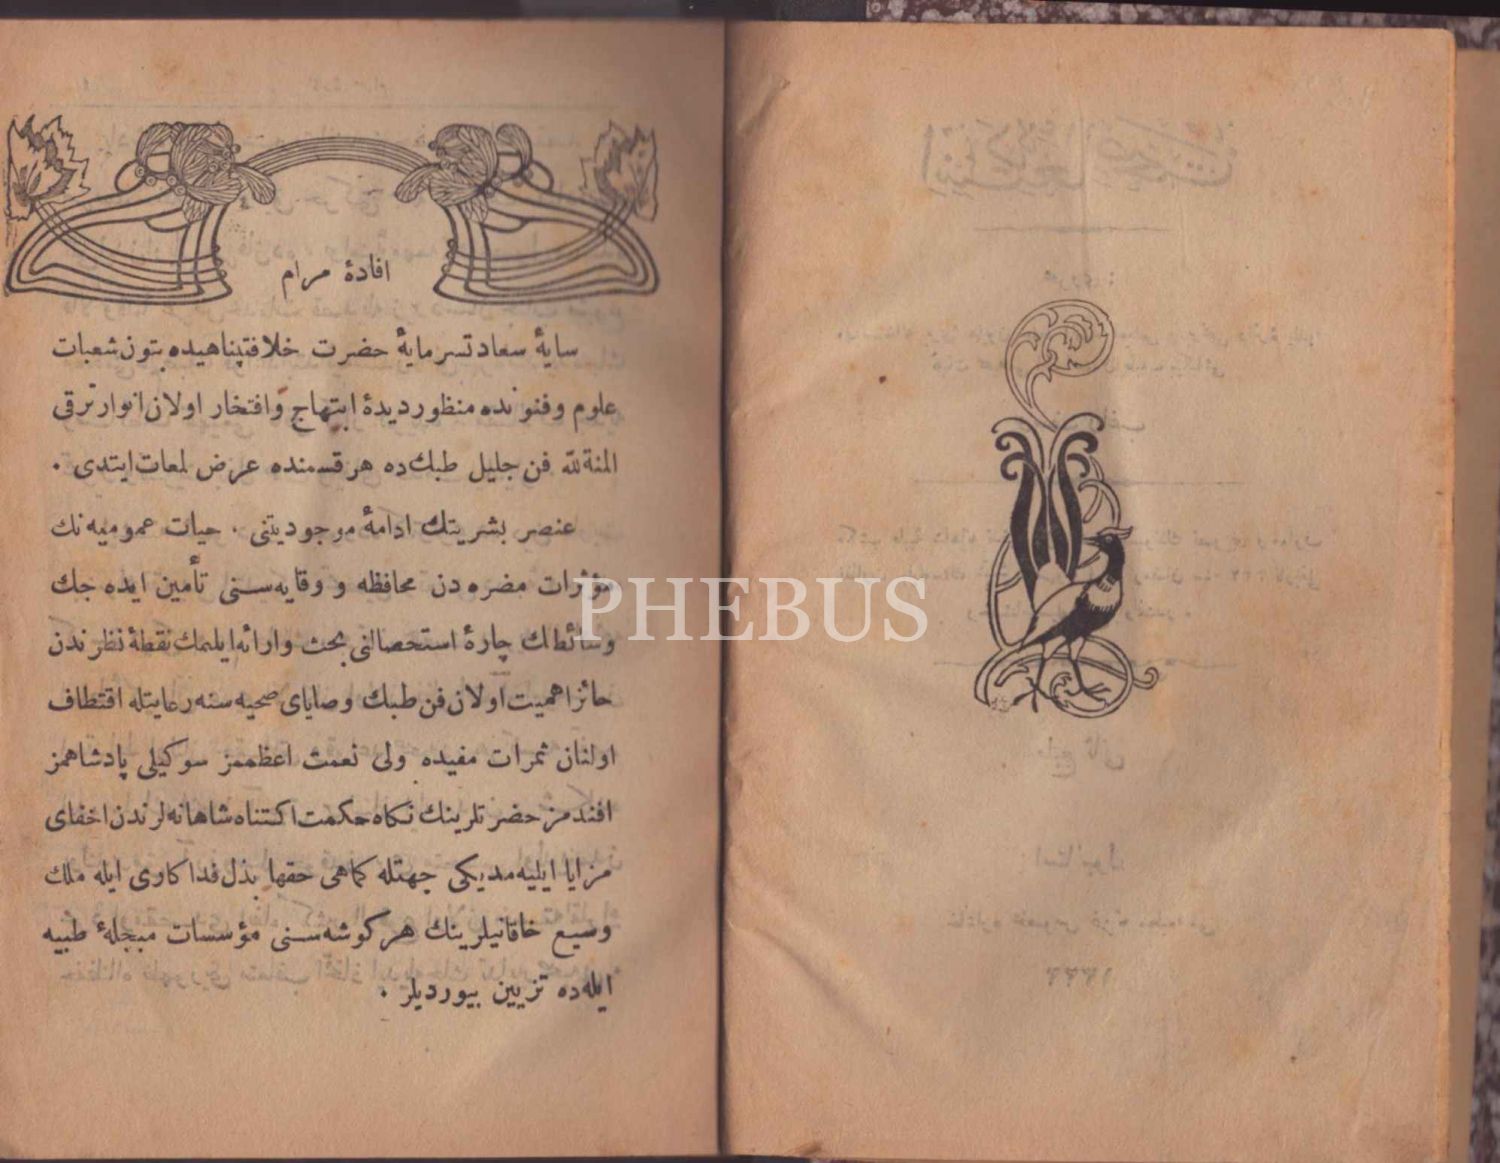 افادهٔ مرام
سایهٔ سعادتسرمایهٔ حضرت خلافتپناهیده بتون شعبات
علوم وفنونده منظوردیدهٔ ابتهاج وافتخار اولان انوارترقی
المنة لله فن جلیل طبك ده هرقسمنده عرض لمعات ایتدی .
عنصر بشریتك ادامهٔ موجودیتنی . حیات عمومیه نك
مؤثرات مضره دن محافظه و وقایه سنی تأمین ایده جك
وسائطك چارهٔ استحصالنی بحث وارائه ایلمك نقطهٔ نظرندن
حائز اهمیت اولان فن طبك وصایای صحیه سنه رعایتله اقتطاف
اولنان ثمرات مفیده ولی نعمت اعظممز سوكیلی پادشاهمز
افندمز حضرتلرینك نكاه حكمت اكتناه شاهانه لرندن اخفای
مزایا ایلیه مدیكی جهتله كماهی حقها بذل فداكاری ایله ملك
وسیع خاقانیلرینك هركوشه سنی مؤسسات مبجلهٔ طبیه
ایله ده تزیین بیوردیلر .
PHEBUS